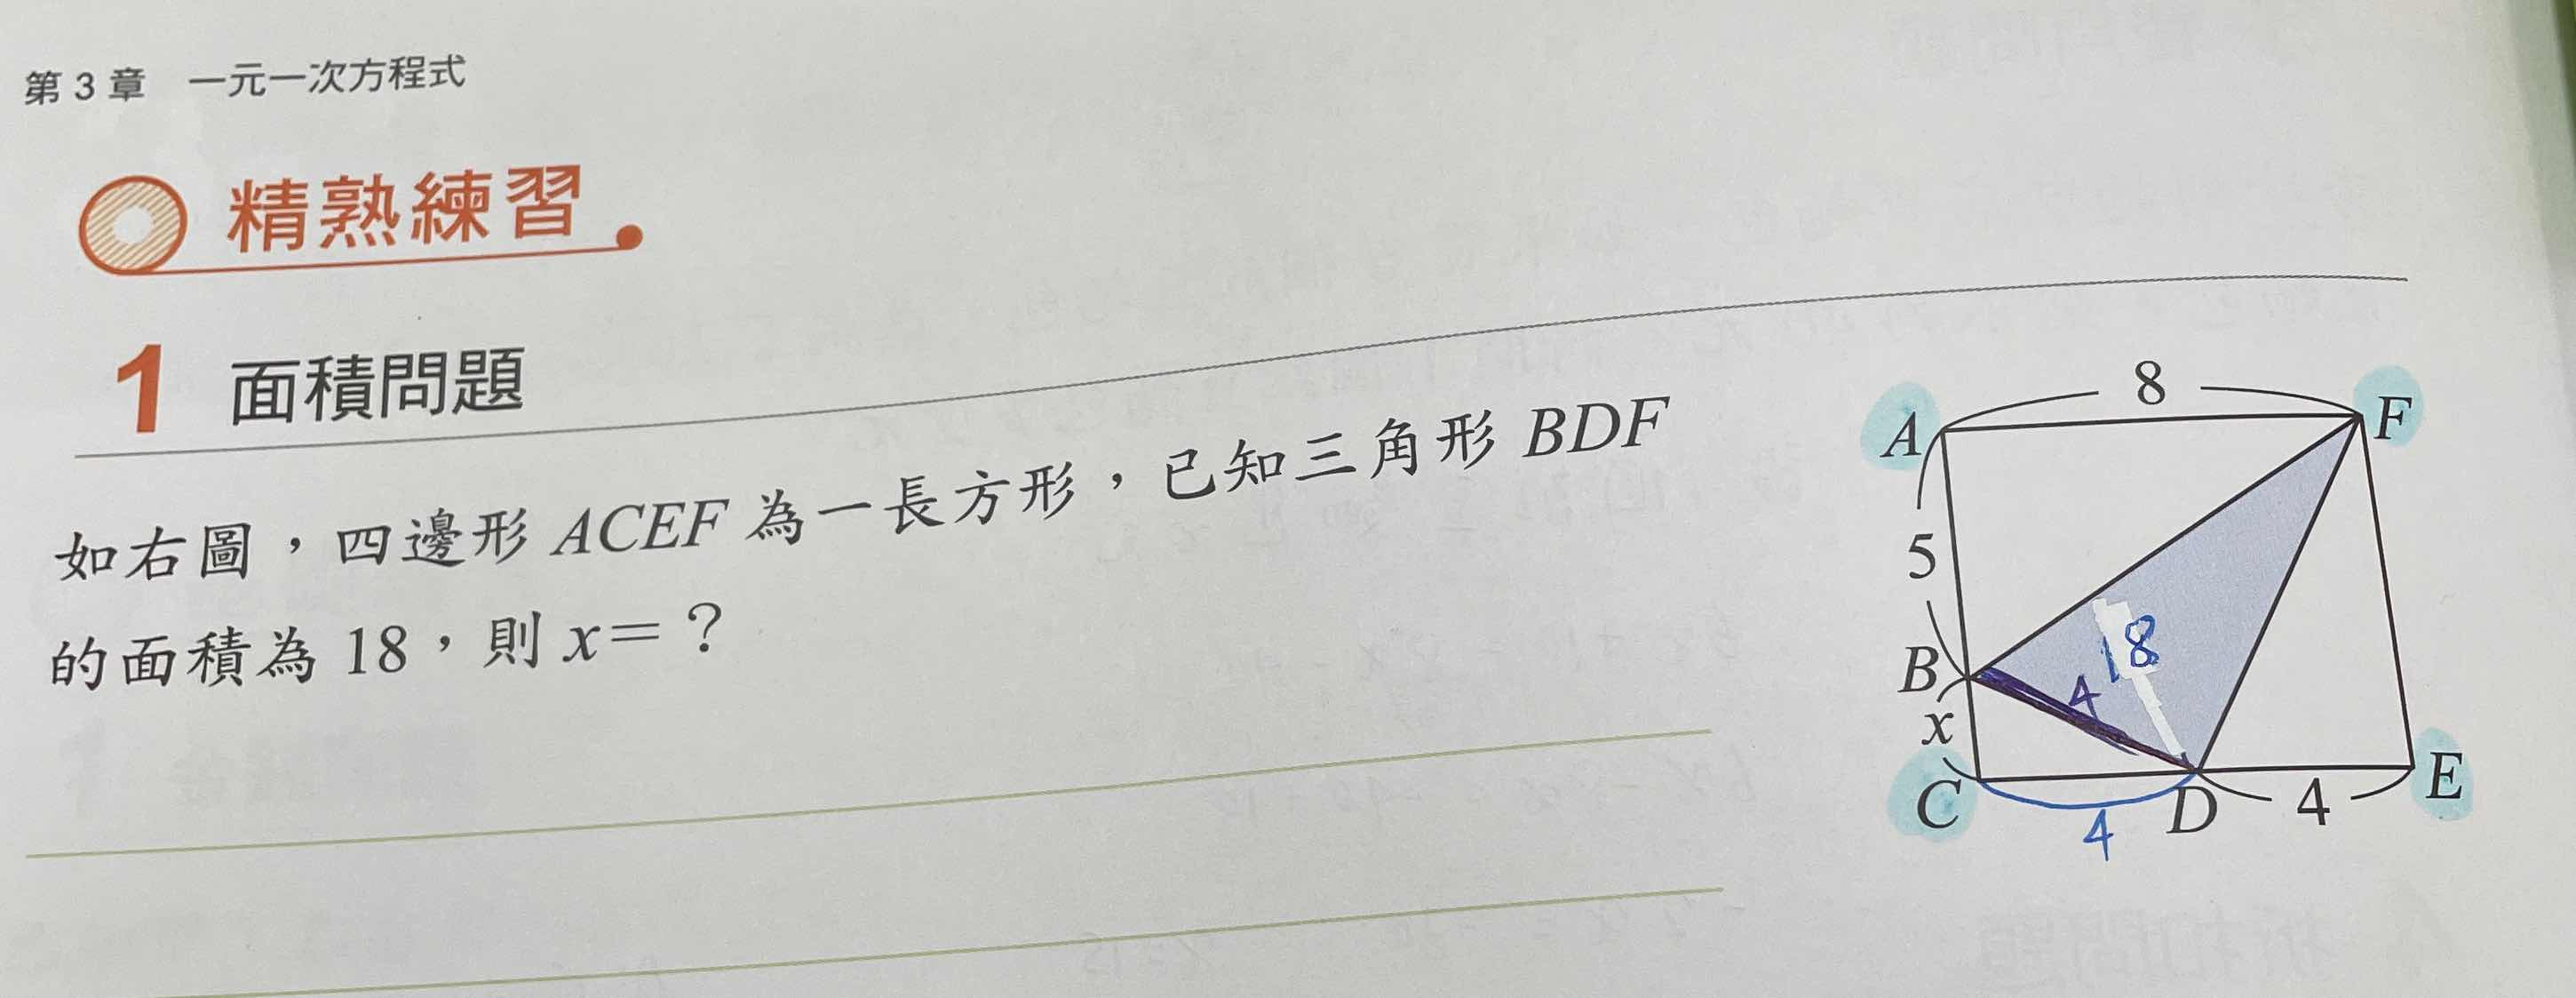 第3章 一元一次方程式
精熟練習
1 面積問題
如右圖，四邊形 ACEF 為一長方形，已知三角形 BDF
的面積為 18，則 x=？
8
A
F
5
18
B
4
x
C
D
4
E
4